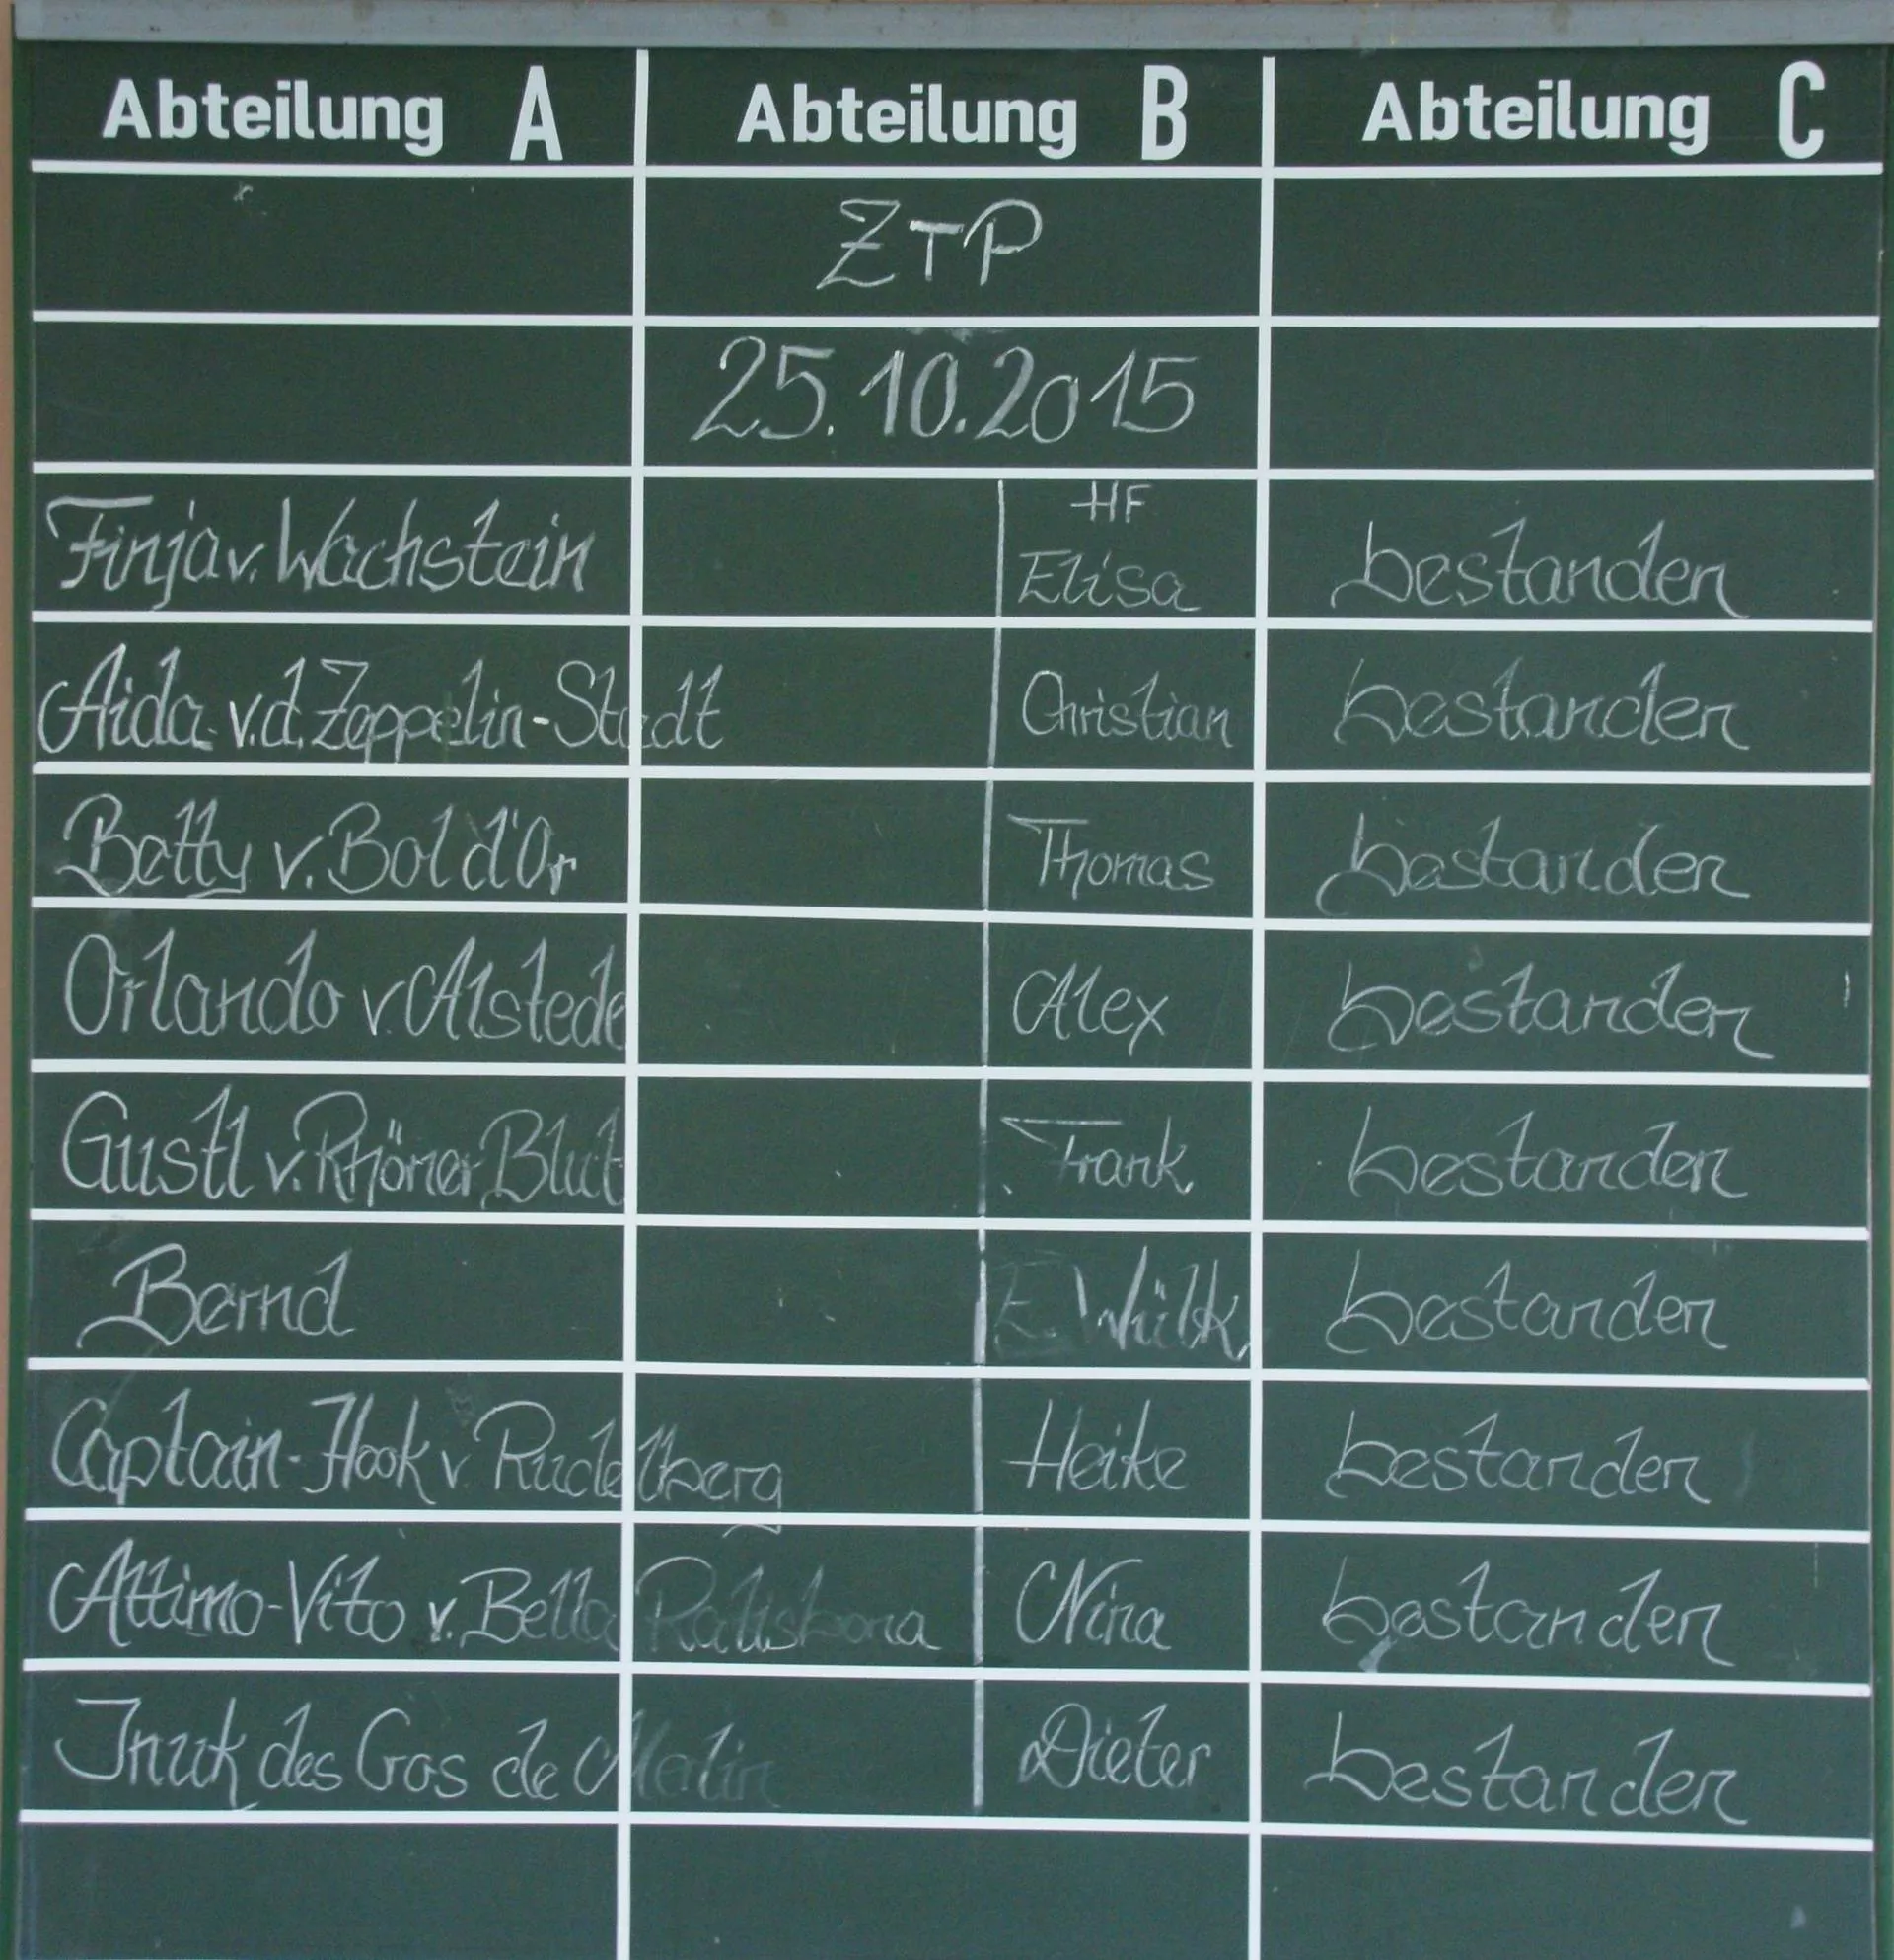 Abteilung A Abteilung B Abteilung C
ZTP
25.10.2015
HF
Finja v. Wachstein Elisa bestanden
Aida v.d. Zeppelin-Stadt Christian bestanden
Betty v. Bol d'Or Thomas bestanden
Orlando v. Alstede Alex bestanden
Gustl v. Rhöner Blut Frank bestanden
Bernd E Wülk bestanden
Captain-Hook v. Rudeltberg Heike bestanden
Attimo-Vito v. Bella Ratisbona Nina bestanden
Inuk des Gos de Merlin Dieter bestanden